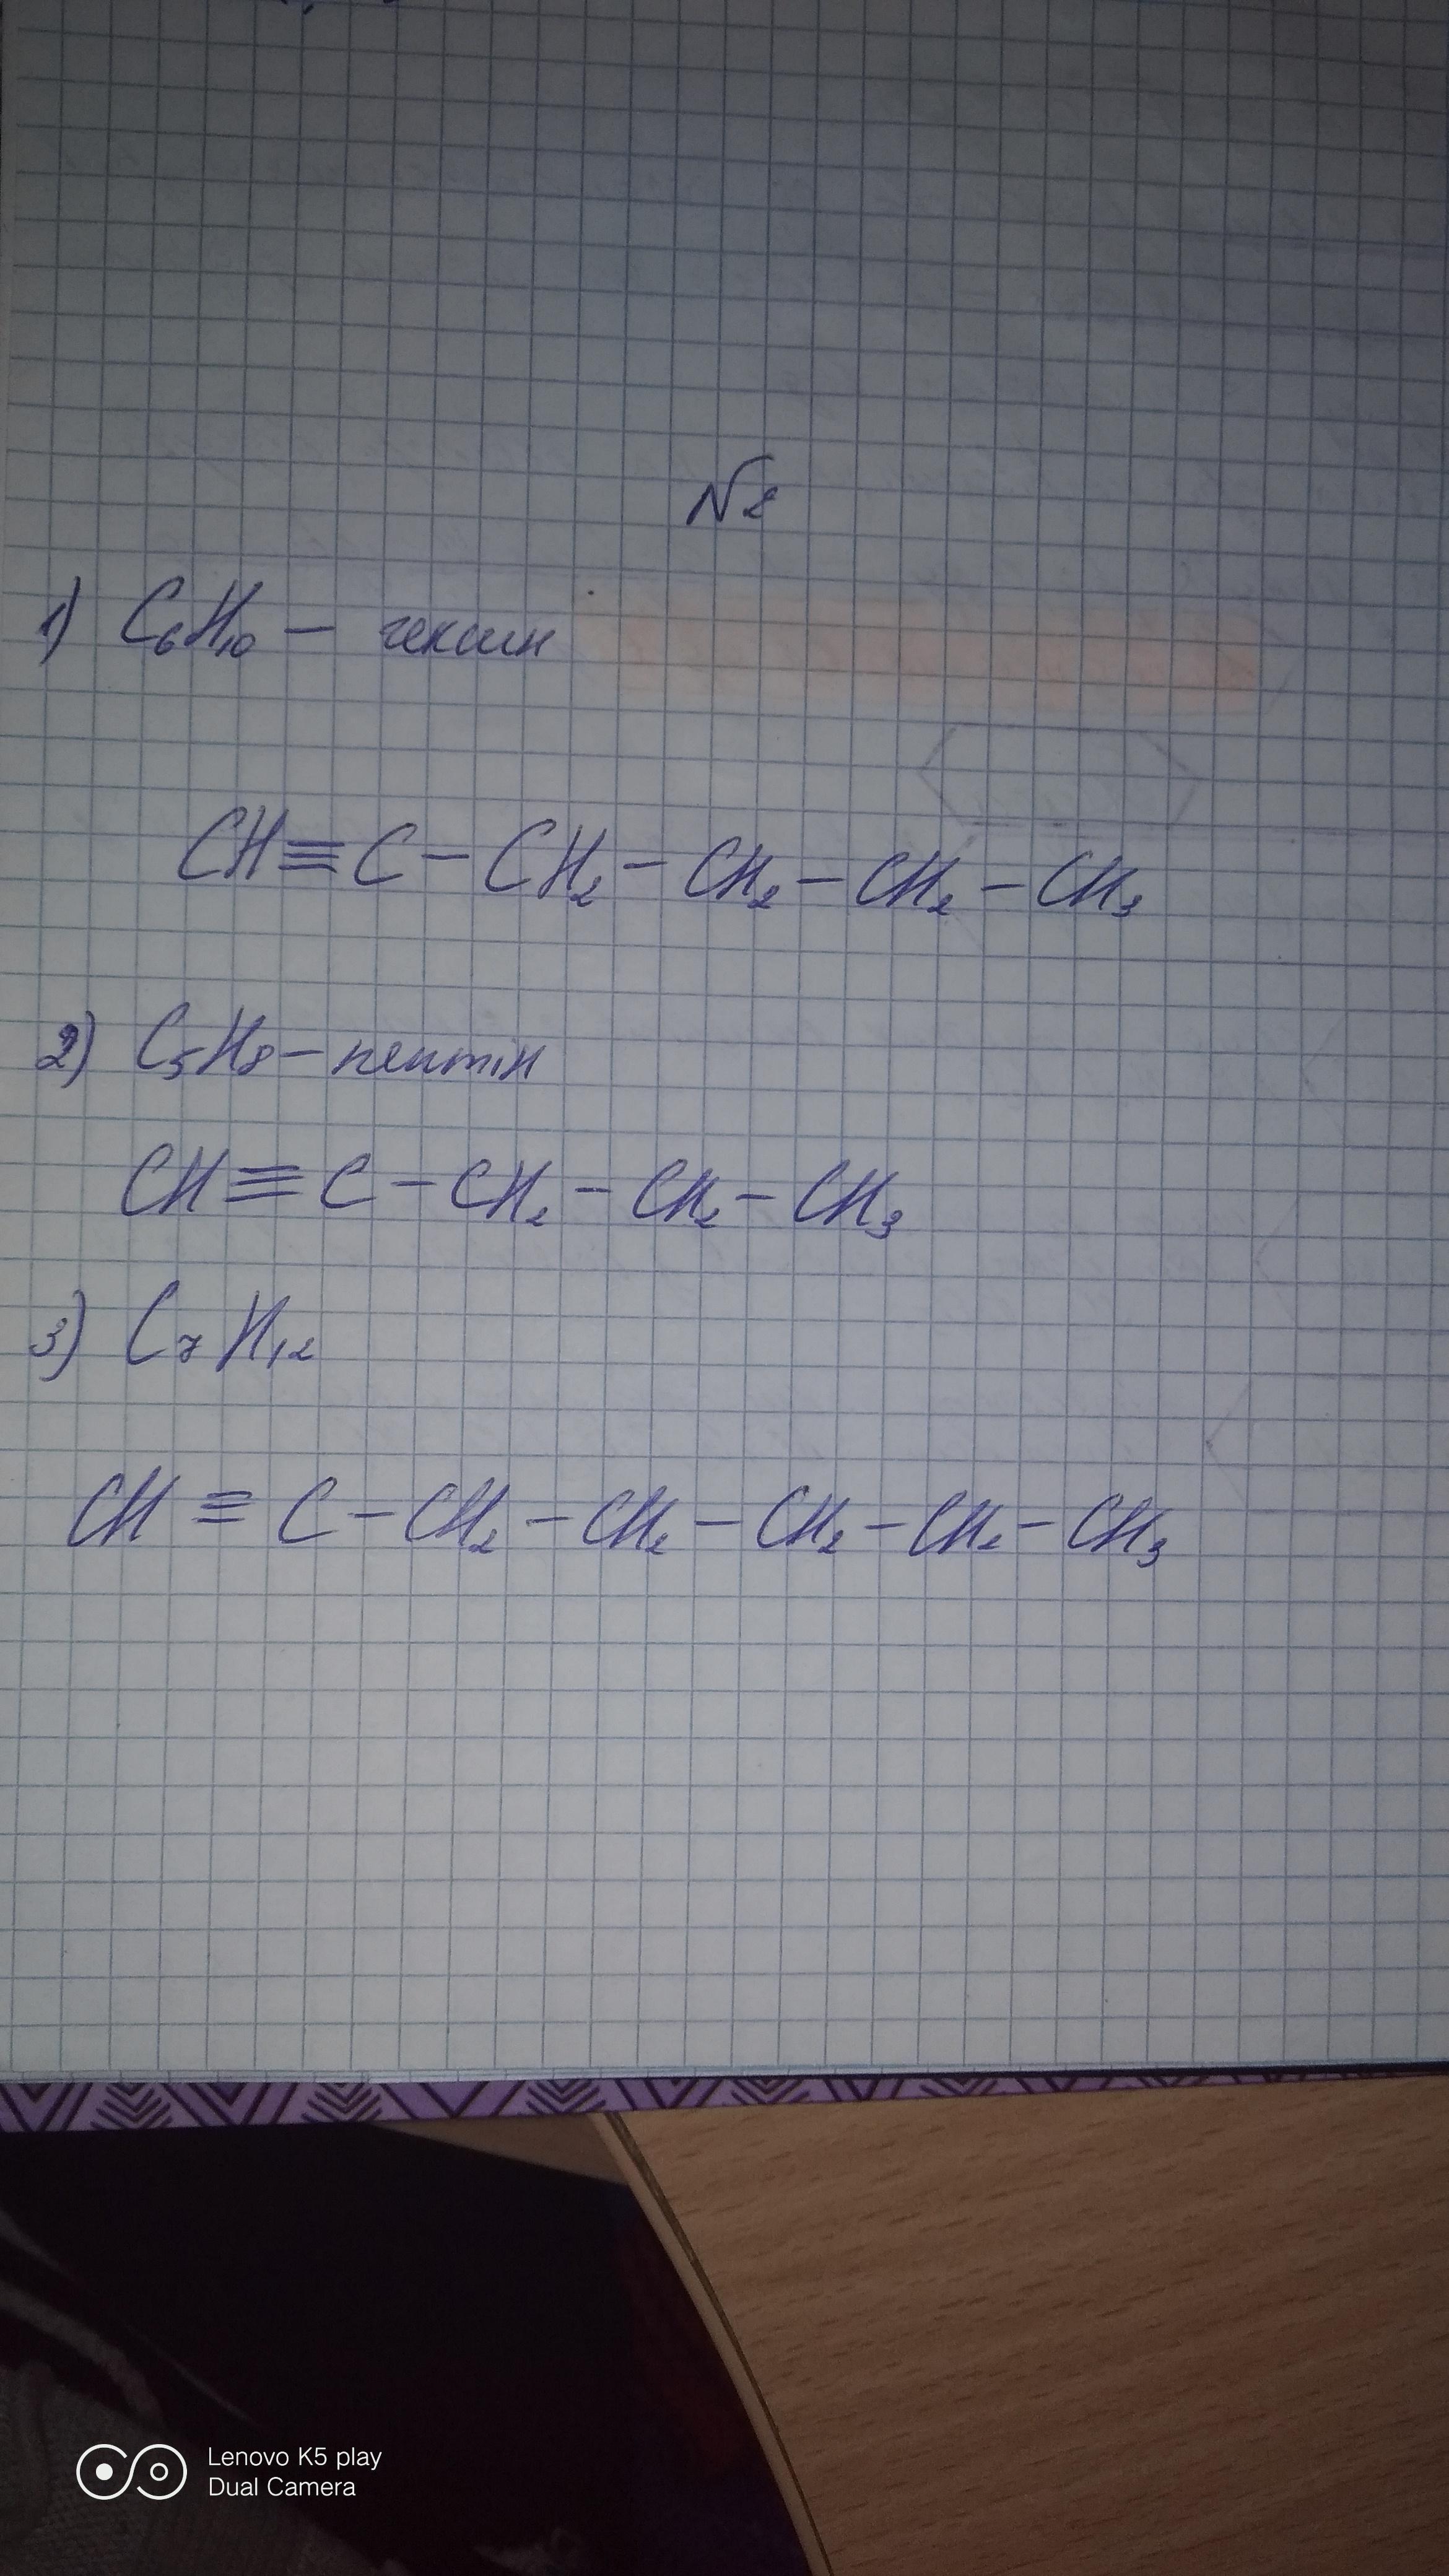 №2
1) C₆H₁₀ — гексин
CH≡C–CH₂–CH₂–CH₂–CH₃
2) C₅H₈ – пентін
CH≡C–CH₂–CH₂–CH₃
3) C₇H₁₂
CH≡C–CH₂–CH₂–CH₂–CH₂–CH₃
Lenovo K5 play
Dual Camera